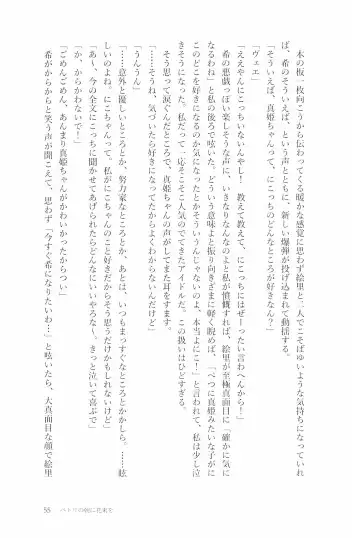 木の板一枚向こうから伝わってくる暖かな感覚に思わず絵里と二人でこそばゆい気持ちになっていれ
ば、希のそういえば、という声とともに、新しい爆弾が投げ込まれて動揺する。
「そういえば、真姫ちゃんって、にこっちのどんなところが好きなん？」
「ヴェエ」
「ええやんにこっちいないんやし！　教えて教えて、にこっちにはぜーったい言わへんから！」
希の悪戯っぽい楽しそうな声に、いきなりなんなのよと私が憤慨すれば、絵里が至極真面目に「確かに気に
なるわね」と私の後ろで呟いた。どういう意味よと振り向きざまに軽く睨めば、「べつに真姫みたいな子がに
このどこを好きになるのか気になったとかそういうんじゃないのよ、本当よにこ！」と言われて、私は少し泣
きそうになった。私だって一応そこそこ人気のでてきたアイドルだ。この扱いはひどすぎる。
そう思って涙ぐんだところで、真姫ちゃんの声がしてまた耳をすます。
「……そうね、気づいたら好きになってたからよくわからないんだけど」
「うんうん」
「……意外と優しいところとか、努力家なところとか、あとは、いつもまっすぐなところとかかしら。……眩
しいのよね。にこちゃんって。私がにこちゃんのこと好きだからそう思うだけかもしれないけど」
「あ〜、今の全文にこっちに聞かせてあげられたらどんなにいいやろな〜。きっと泣いて喜ぶで」
「か、からかわないで！」
「ごめんごめん、あんまり真姫ちゃんがかわいかったからつい」
希がからからと笑う声が聞こえて、思わず「今すぐ希になりたいわ…」と呟いたら、大真面目な顔で絵里
55